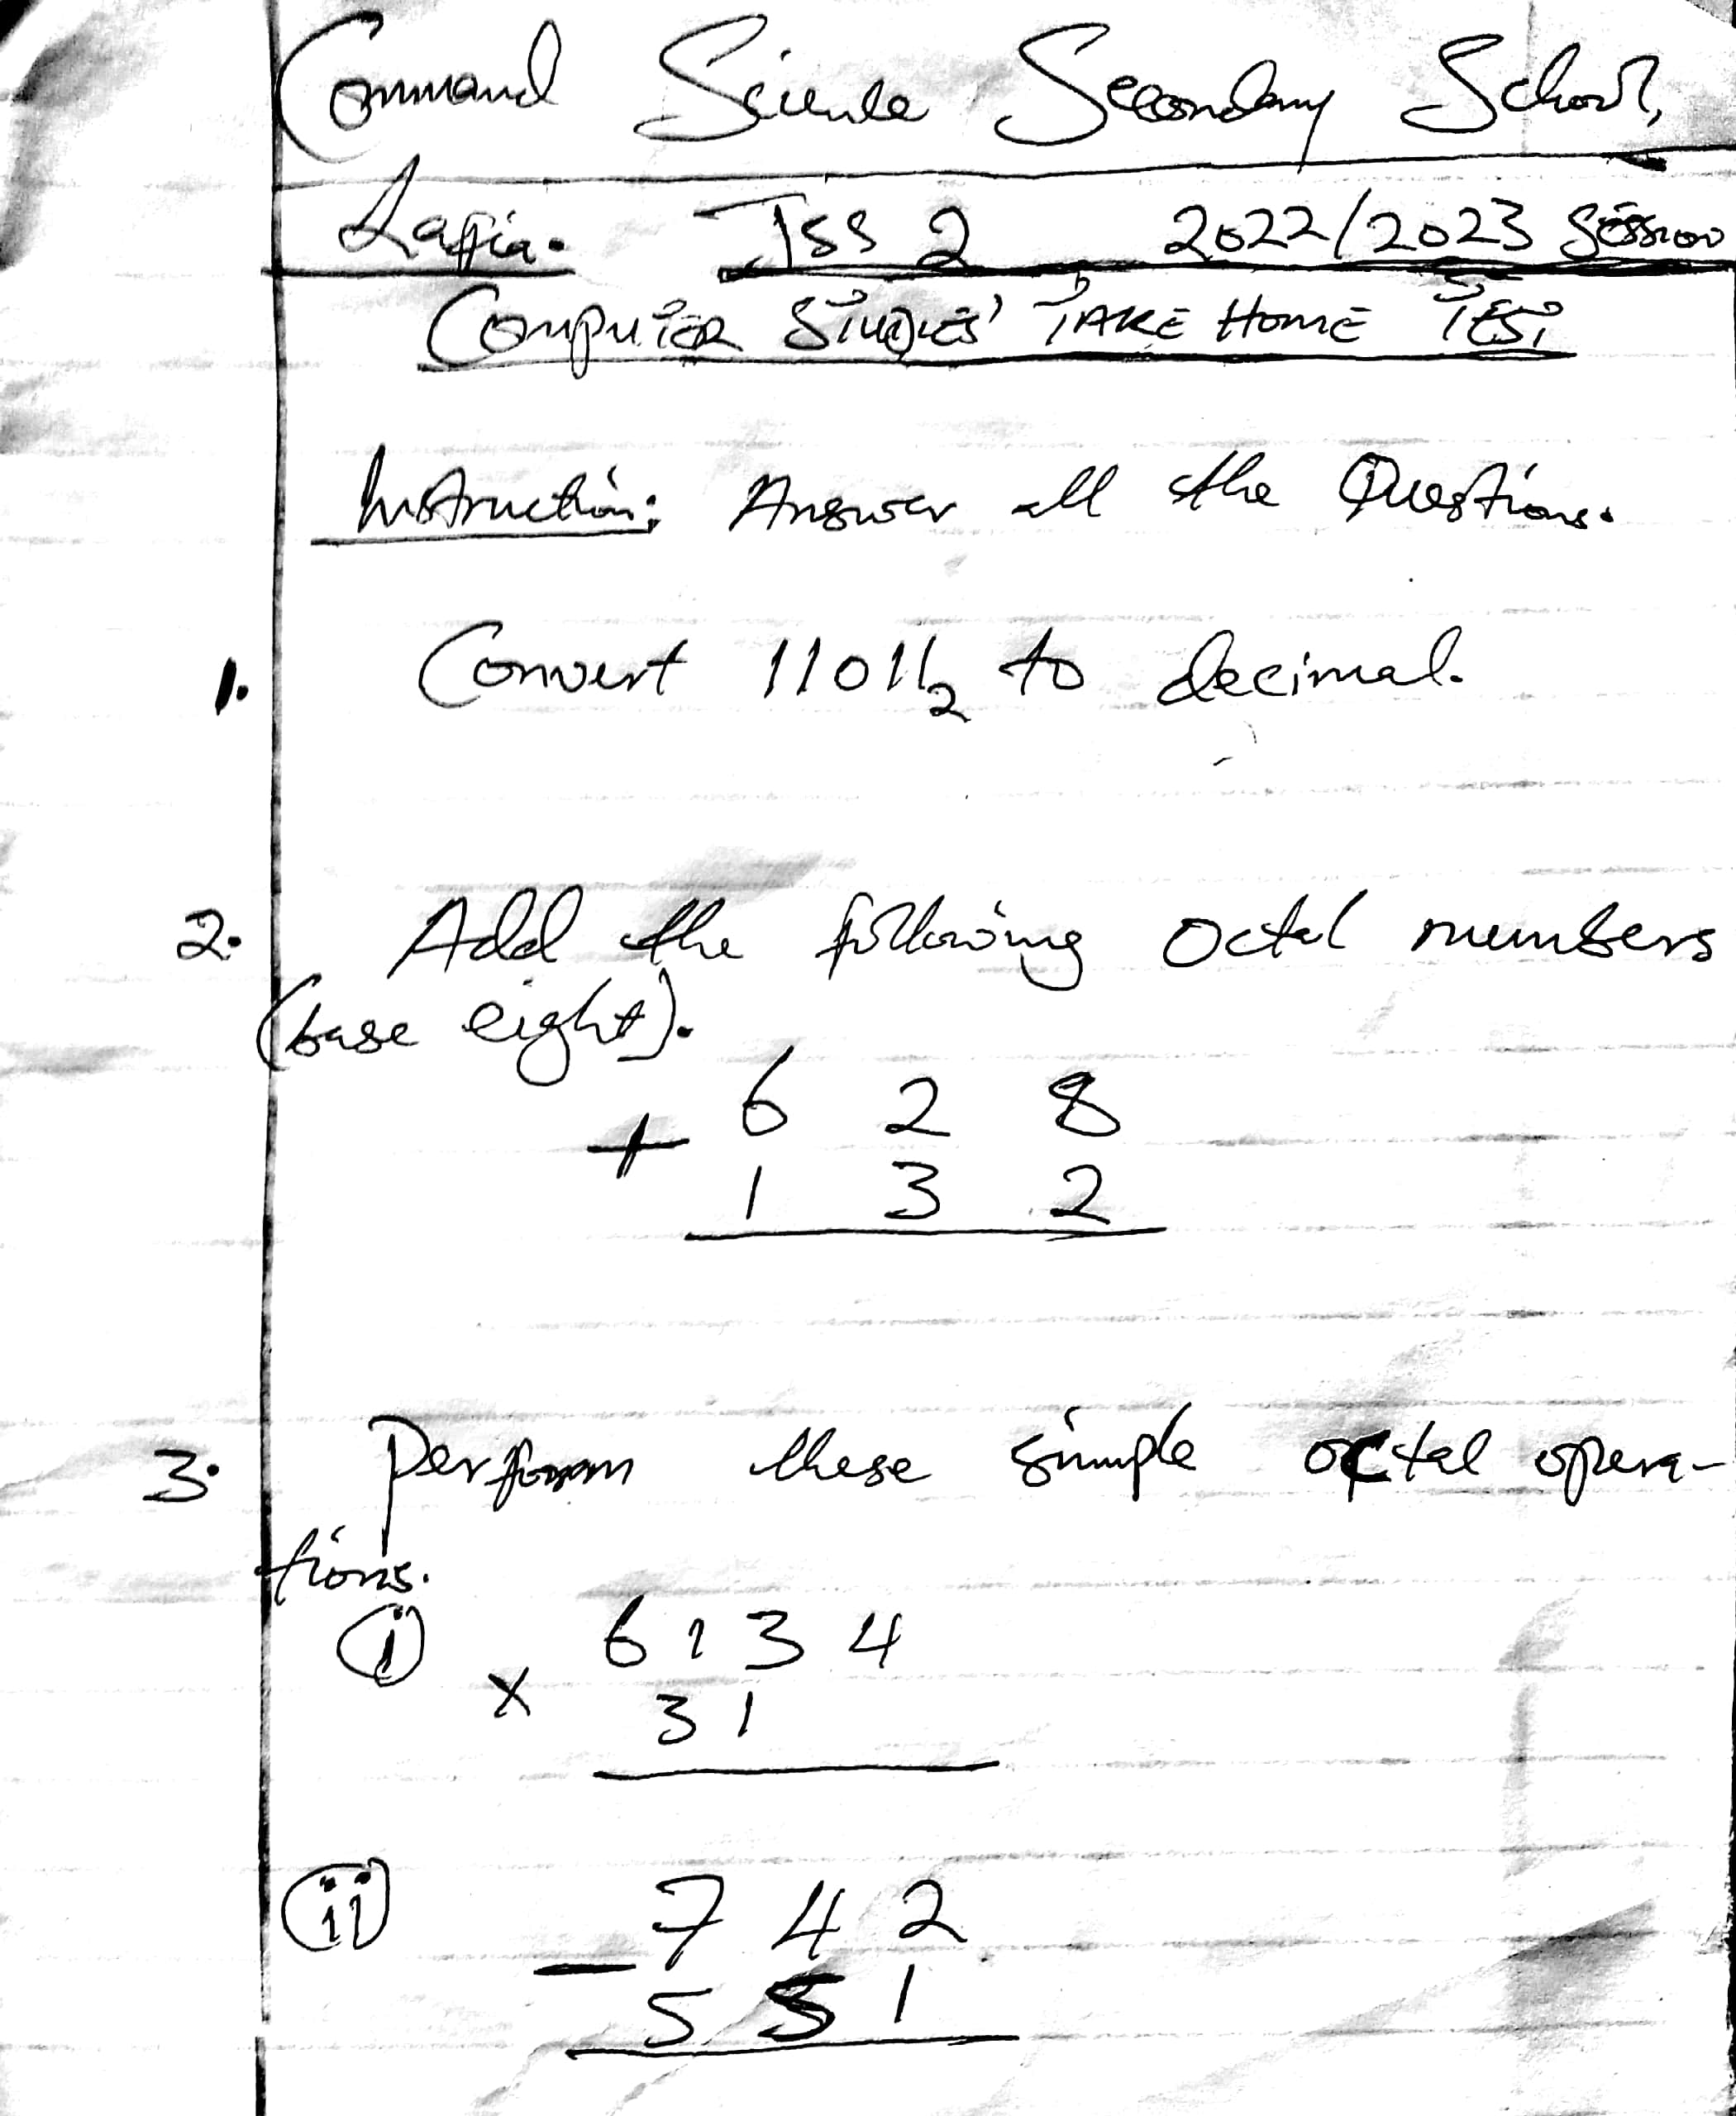 Command Science Secondary School,
Lafia. JSS 2 2022/2023 Session
COMPUTER STUDIES' TAKE HOME TEST
Instruction: Answer all the Questions.
1. Convert 11011₂ to decimal.
2. Add the following Octal numbers
(base eight).
6 2 8
+
1 3 2
3. Perform these simple octal opera-
tions.
(i) 6 1 3 4
×
3 1
(ii) 7 4 2
-
5 5 1